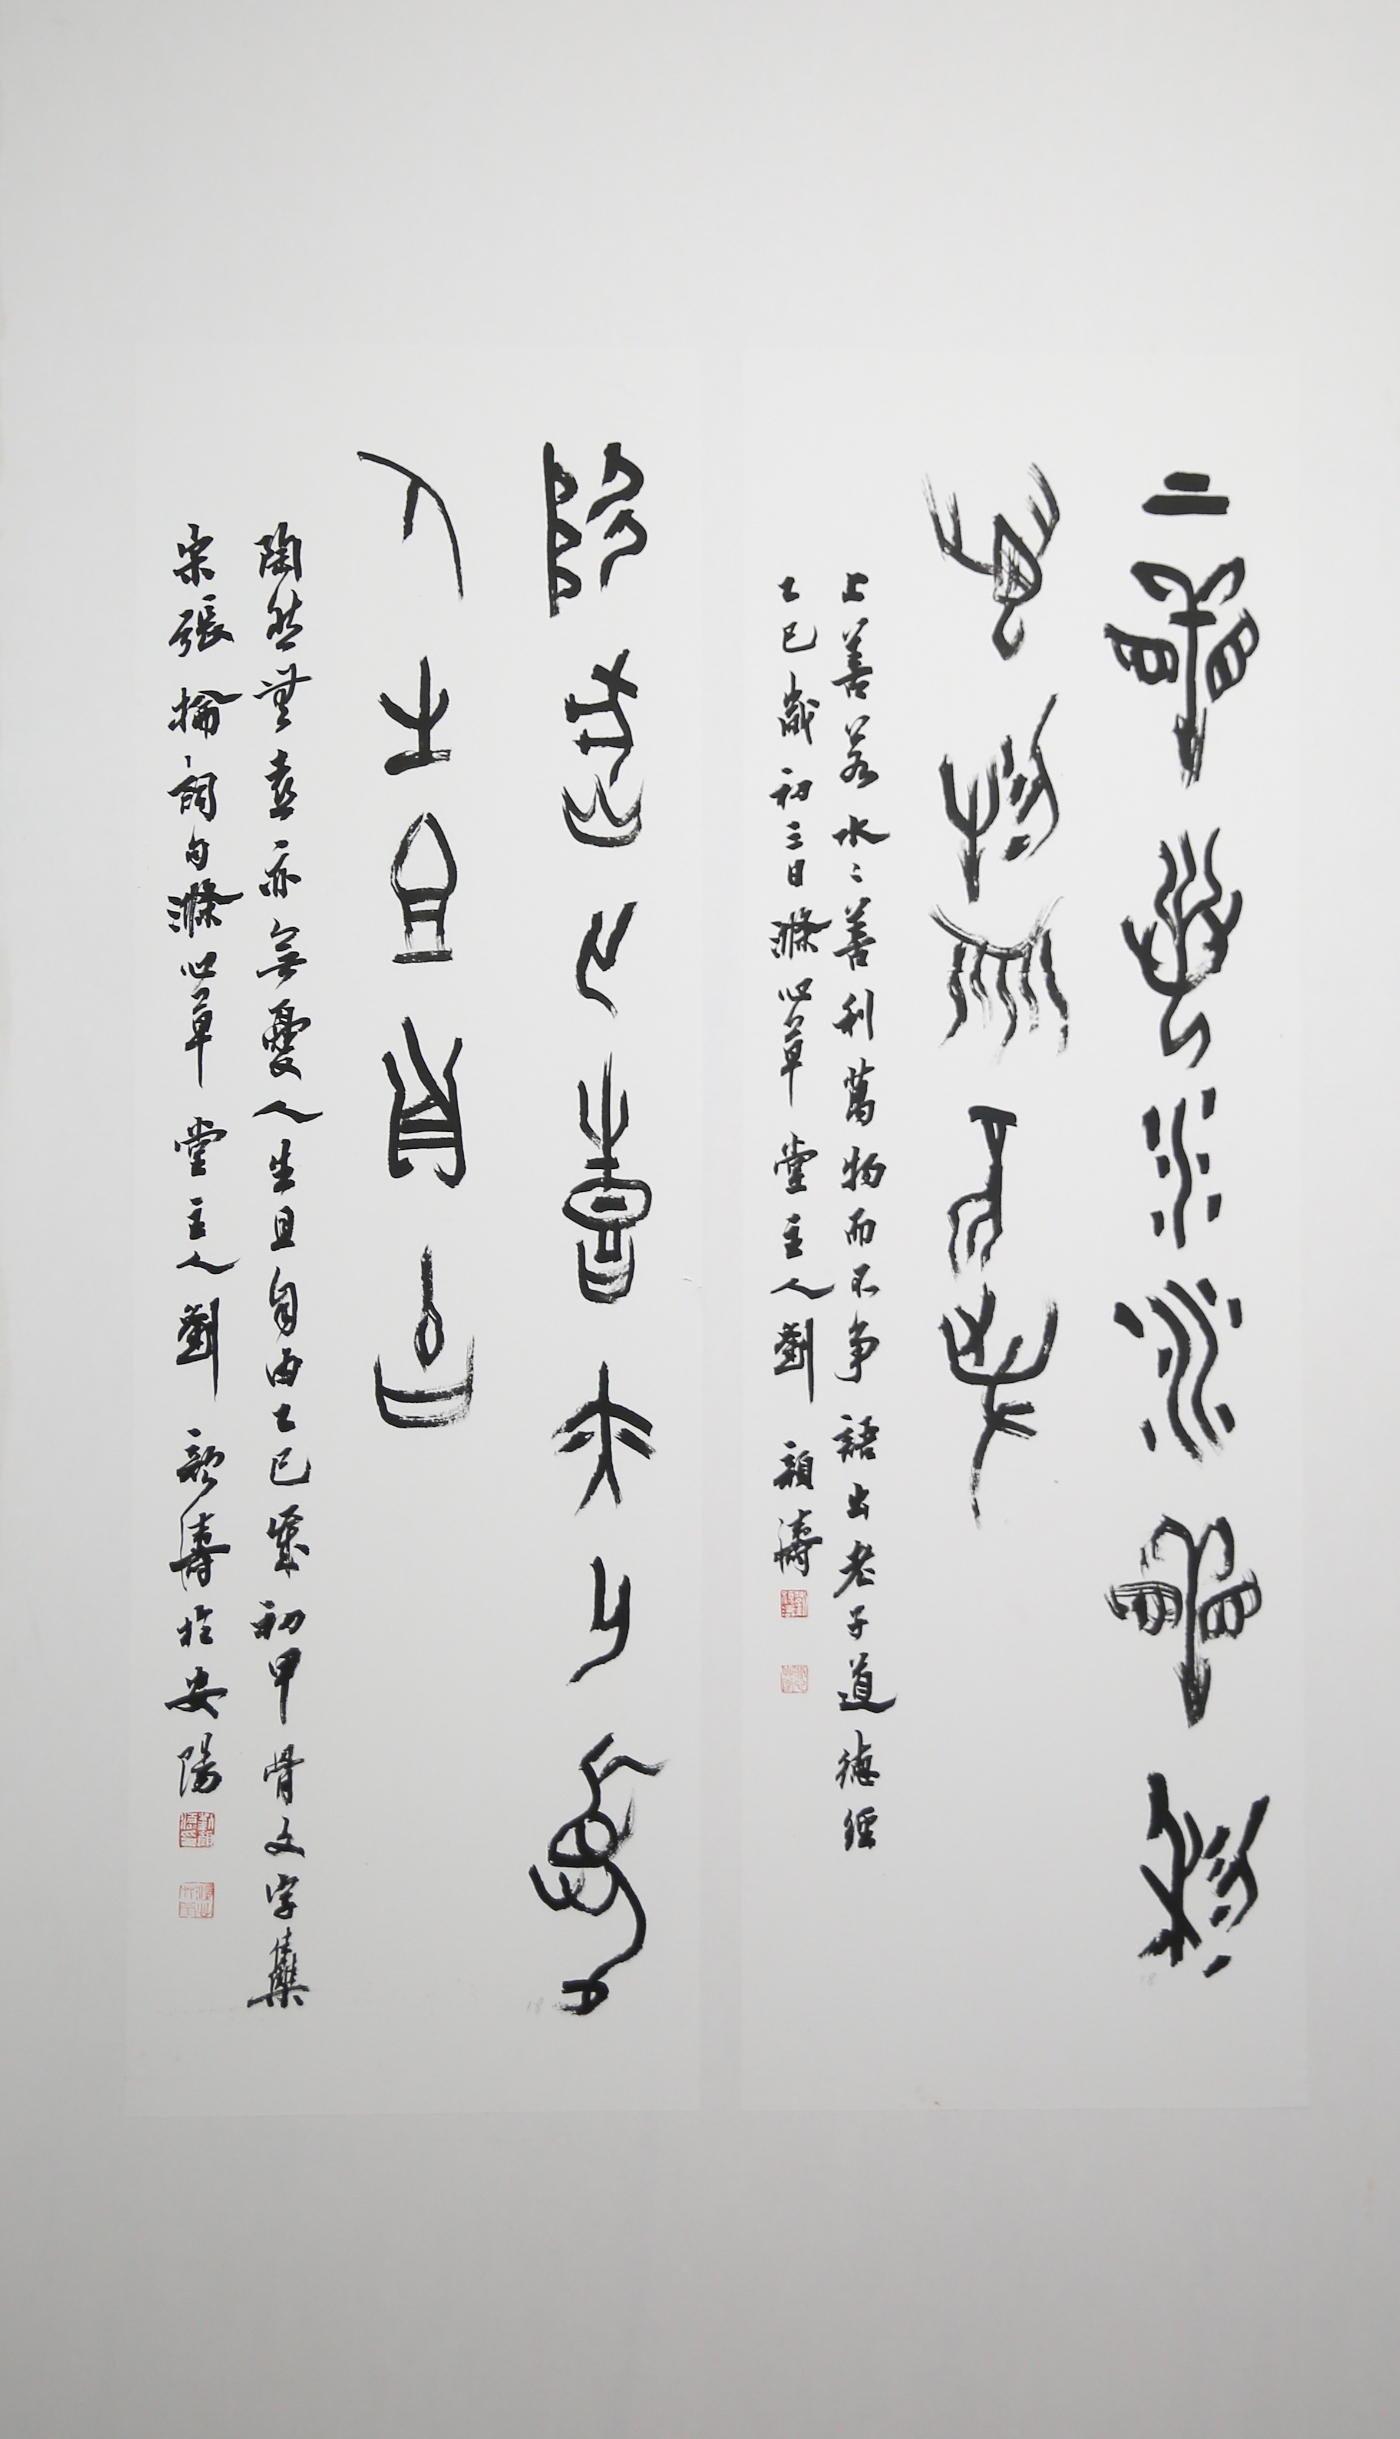 上善若水水善利
萬物而不爭
上善若水〻善利萬物而不争 語出老子道德經
乙巳歲初三日滌心草堂主人劉顏濤
陶然無喜亦無憂
人生且自由
陶然無喜亦無憂人生且自由乙巳歲初甲骨文字集
宋張掄詞句滌心草堂主人劉顏濤於安陽